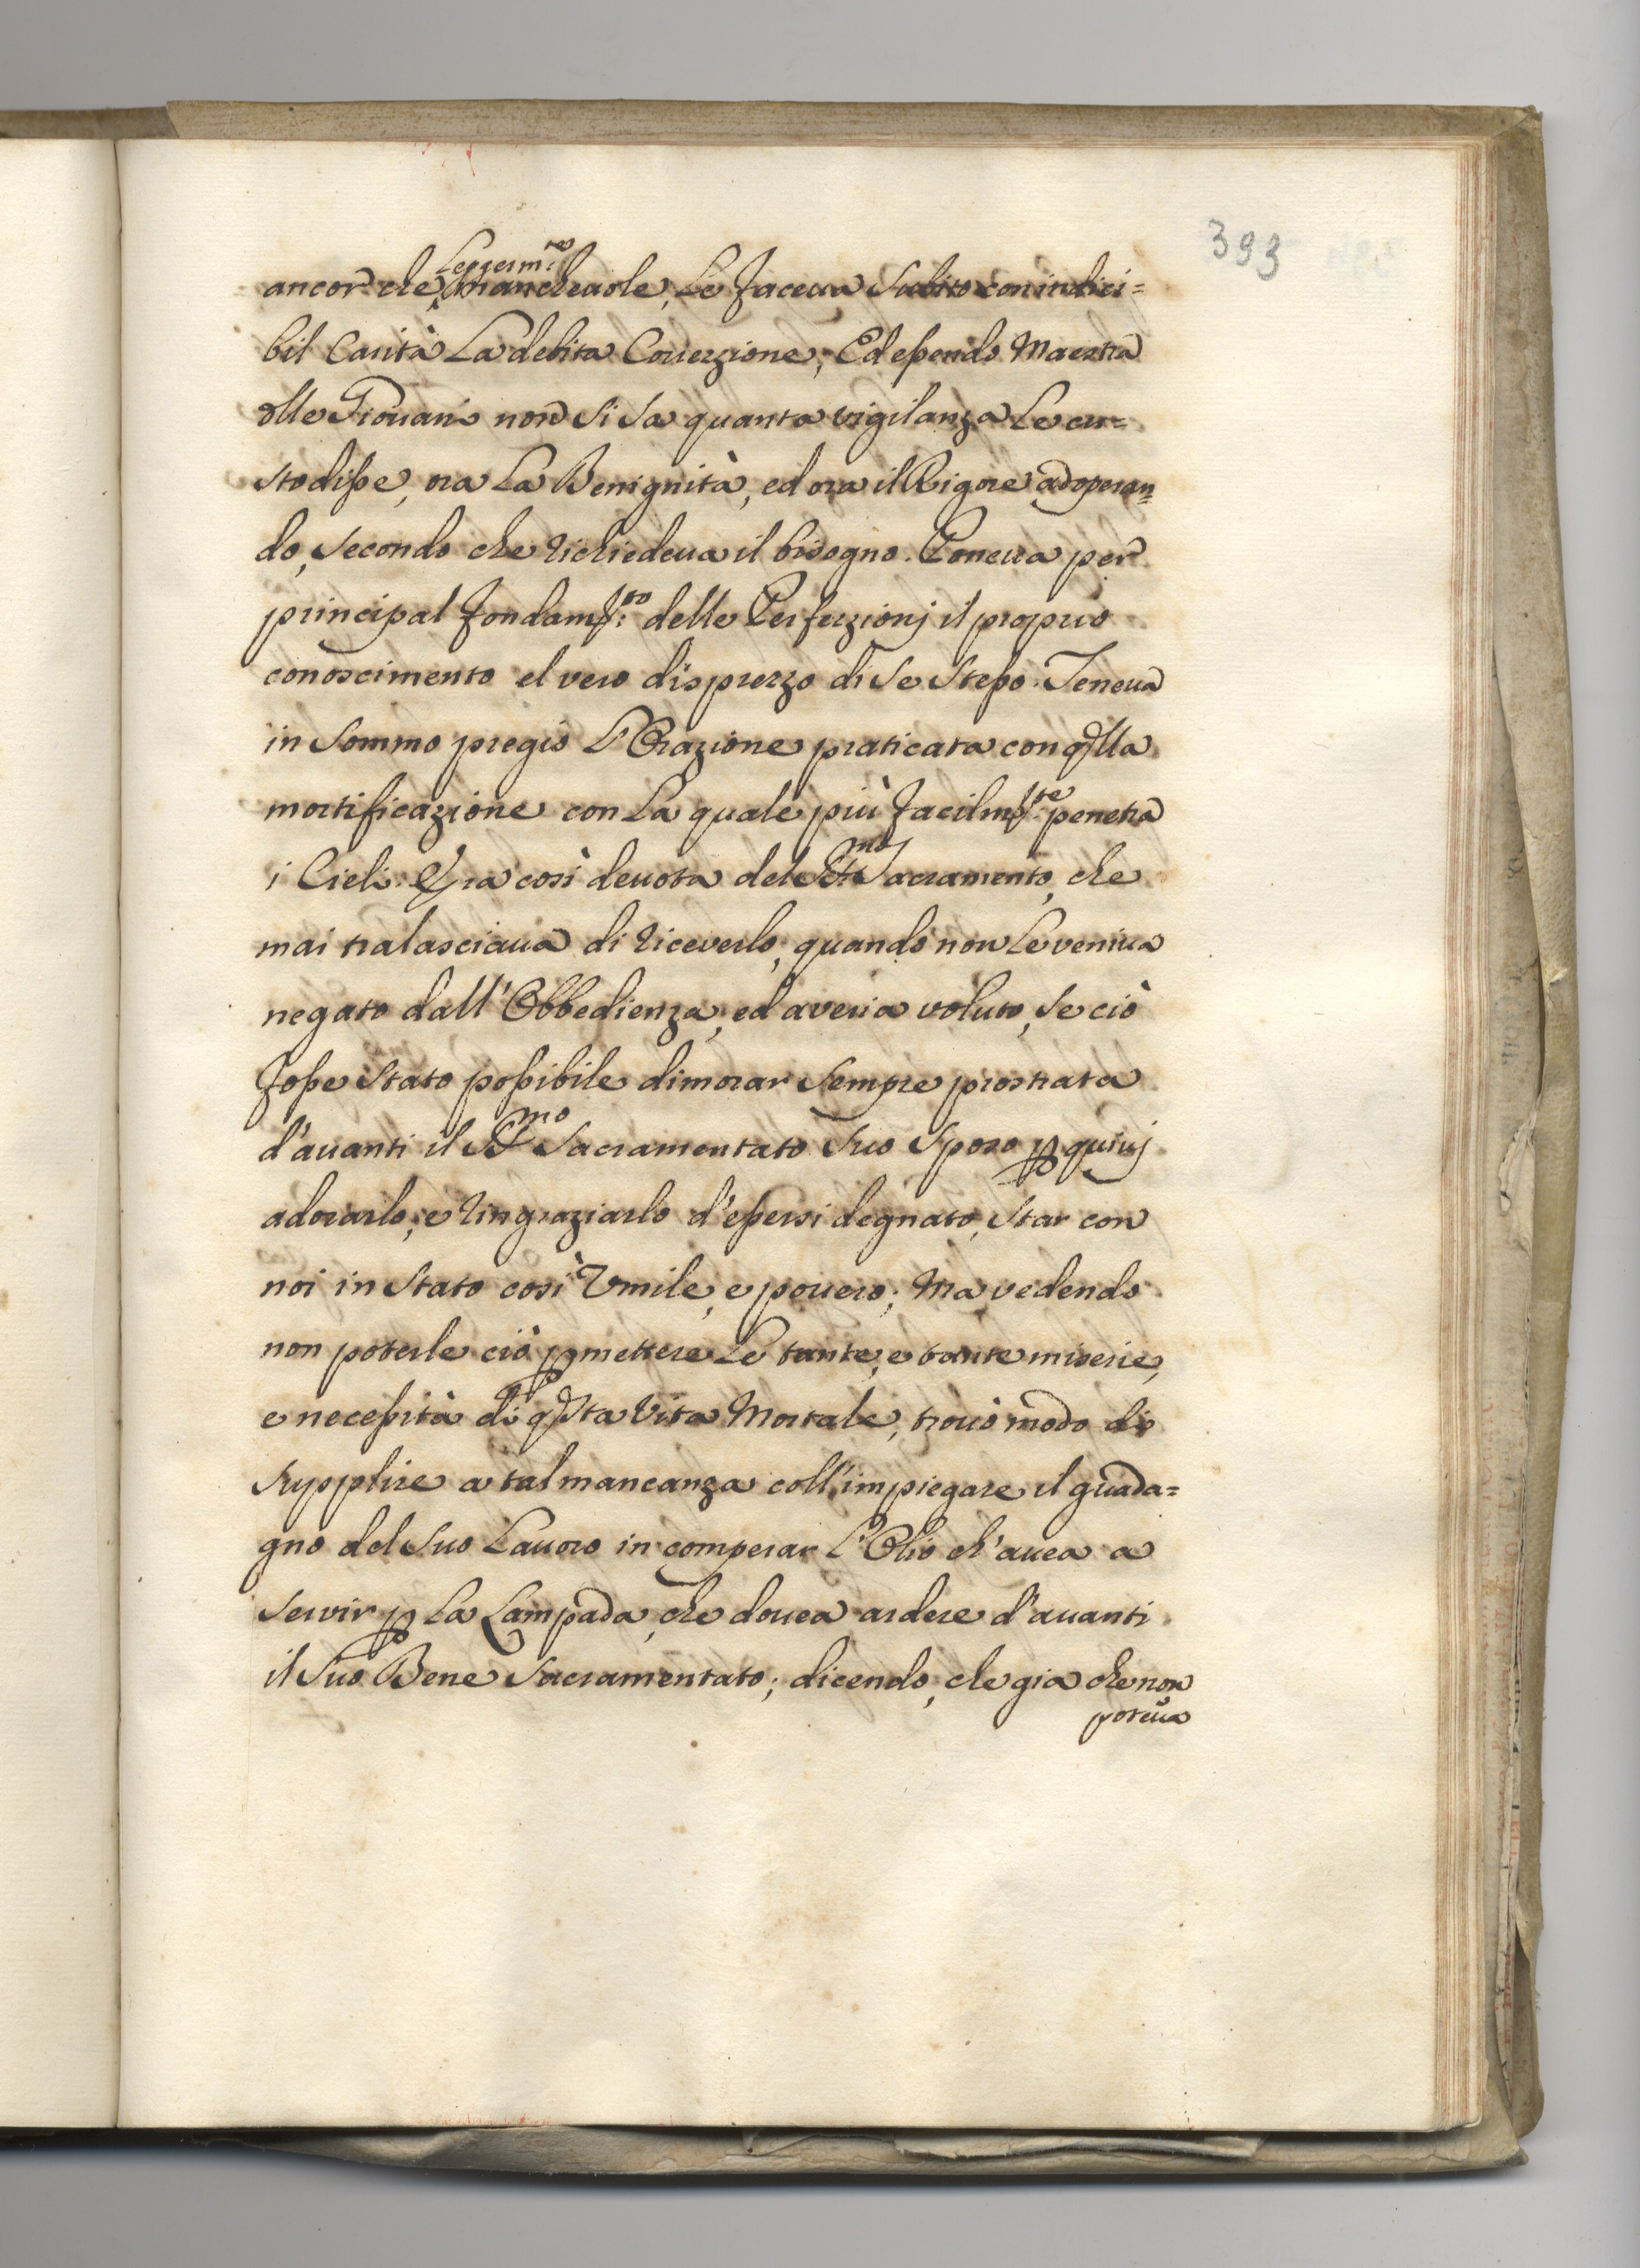 393
Leggerm:te
ancor che, mancheuole, Le faceua subito con indici=
bil Carità La debita Correzzione; Ed essendo Maestra
dlle Giouani non si sa quanta vigilanza Le cu=
stodisse, ora La Benignità, ed ora il Rigore adoperan=
do, secondo che richiedeua il bisogno. Poneua per
principal fondam:to delle Perfezzionj il proprio
conoscimento el vero disprezzo di se stesso. Teneua
in sommo pregio L'Orazione praticata con qlla
mortificazione con La quale più facilm:te penetra
i Cieli. Era così deuota del SSmo Sacramento, che
mai tralasciaua di riceverlo, quando non Le veniua
negato dall'Obbedienza, ed averia voluto, se ciò
fosse stato possibile dimorar sempre prostrata
d'auanti il SSmo Sacramentato suo Sposo p quiuj
adorarlo, e ringraziarlo d'essersi degnato, star con
noi in stato così Vmile, e pouero; Ma vedendo
non poterle ciò pmettere Le tante, e tante miserie,
e necessità di qsta Vita Mortale, trouò modo di
supplire a tal mancanza coll'impiegare il guada=
gno del suo Lauoro in comperar L'Olio ch'auea a
servir p La Lampada, che douea ardere d'auanti
il suo Bene Sacramentato; dicendo, che gia che non
poteua